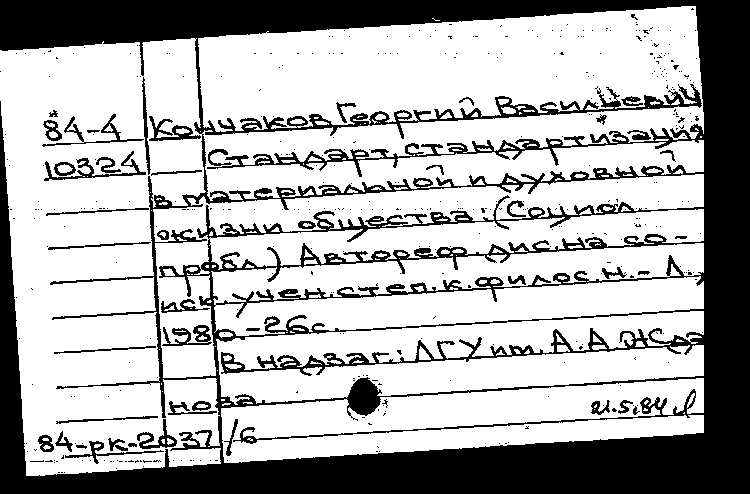 84-4 Кончаков, Георгий Васильевич
10324 Стандарт, стандартизация
в материальной и духовной
жизни общества: (Социол.
пробл.) Автореф. дис. на со-
иск. учен. степ. к. филос. н. - Л.,
1980. - 26с.
В надзаг.: ЛГУ им. А.А Жда
нова.
21.5.84
84-рк-2037/6